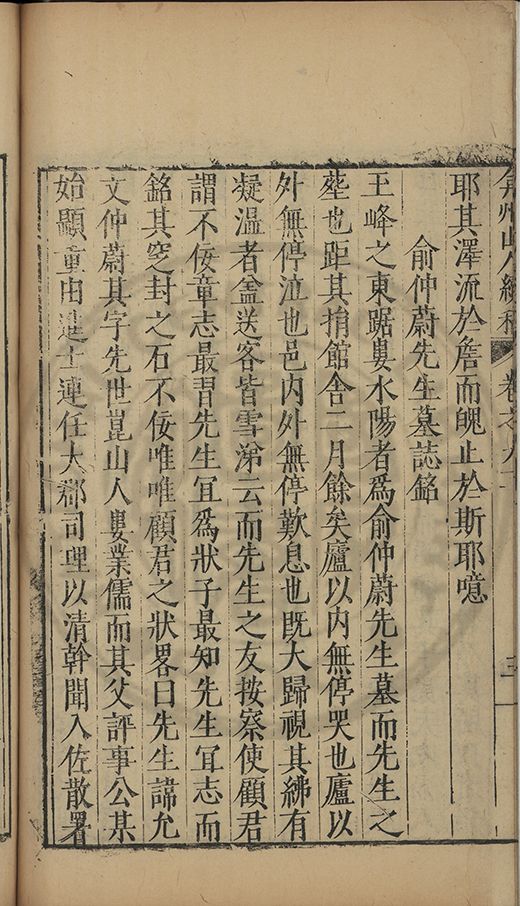 弇州山人續稿 卷之九十 二
耶其澤流於詹而魄止於斯耶噫
俞仲蔚先生墓誌銘
玉峰之東踞婁水陽者爲俞仲蔚先生墓而先生之
塟也距其捐館舍二月餘矣廬以内無停哭也廬以
外無停泣也邑内外無停歎息也既大歸視其紼有
凝溫者盫送客皆雪涕云而先生之友按察使顧君
謂不佞童志最習先生宜爲狀子最知先生宜志而
銘其窆封之石不佞唯唯顧君之狀畧曰先生諱允
文仲蔚其字先世崑山人婁業儒而其父評事公某
始顯重由進士連任大郡司理以清幹聞入佐散署